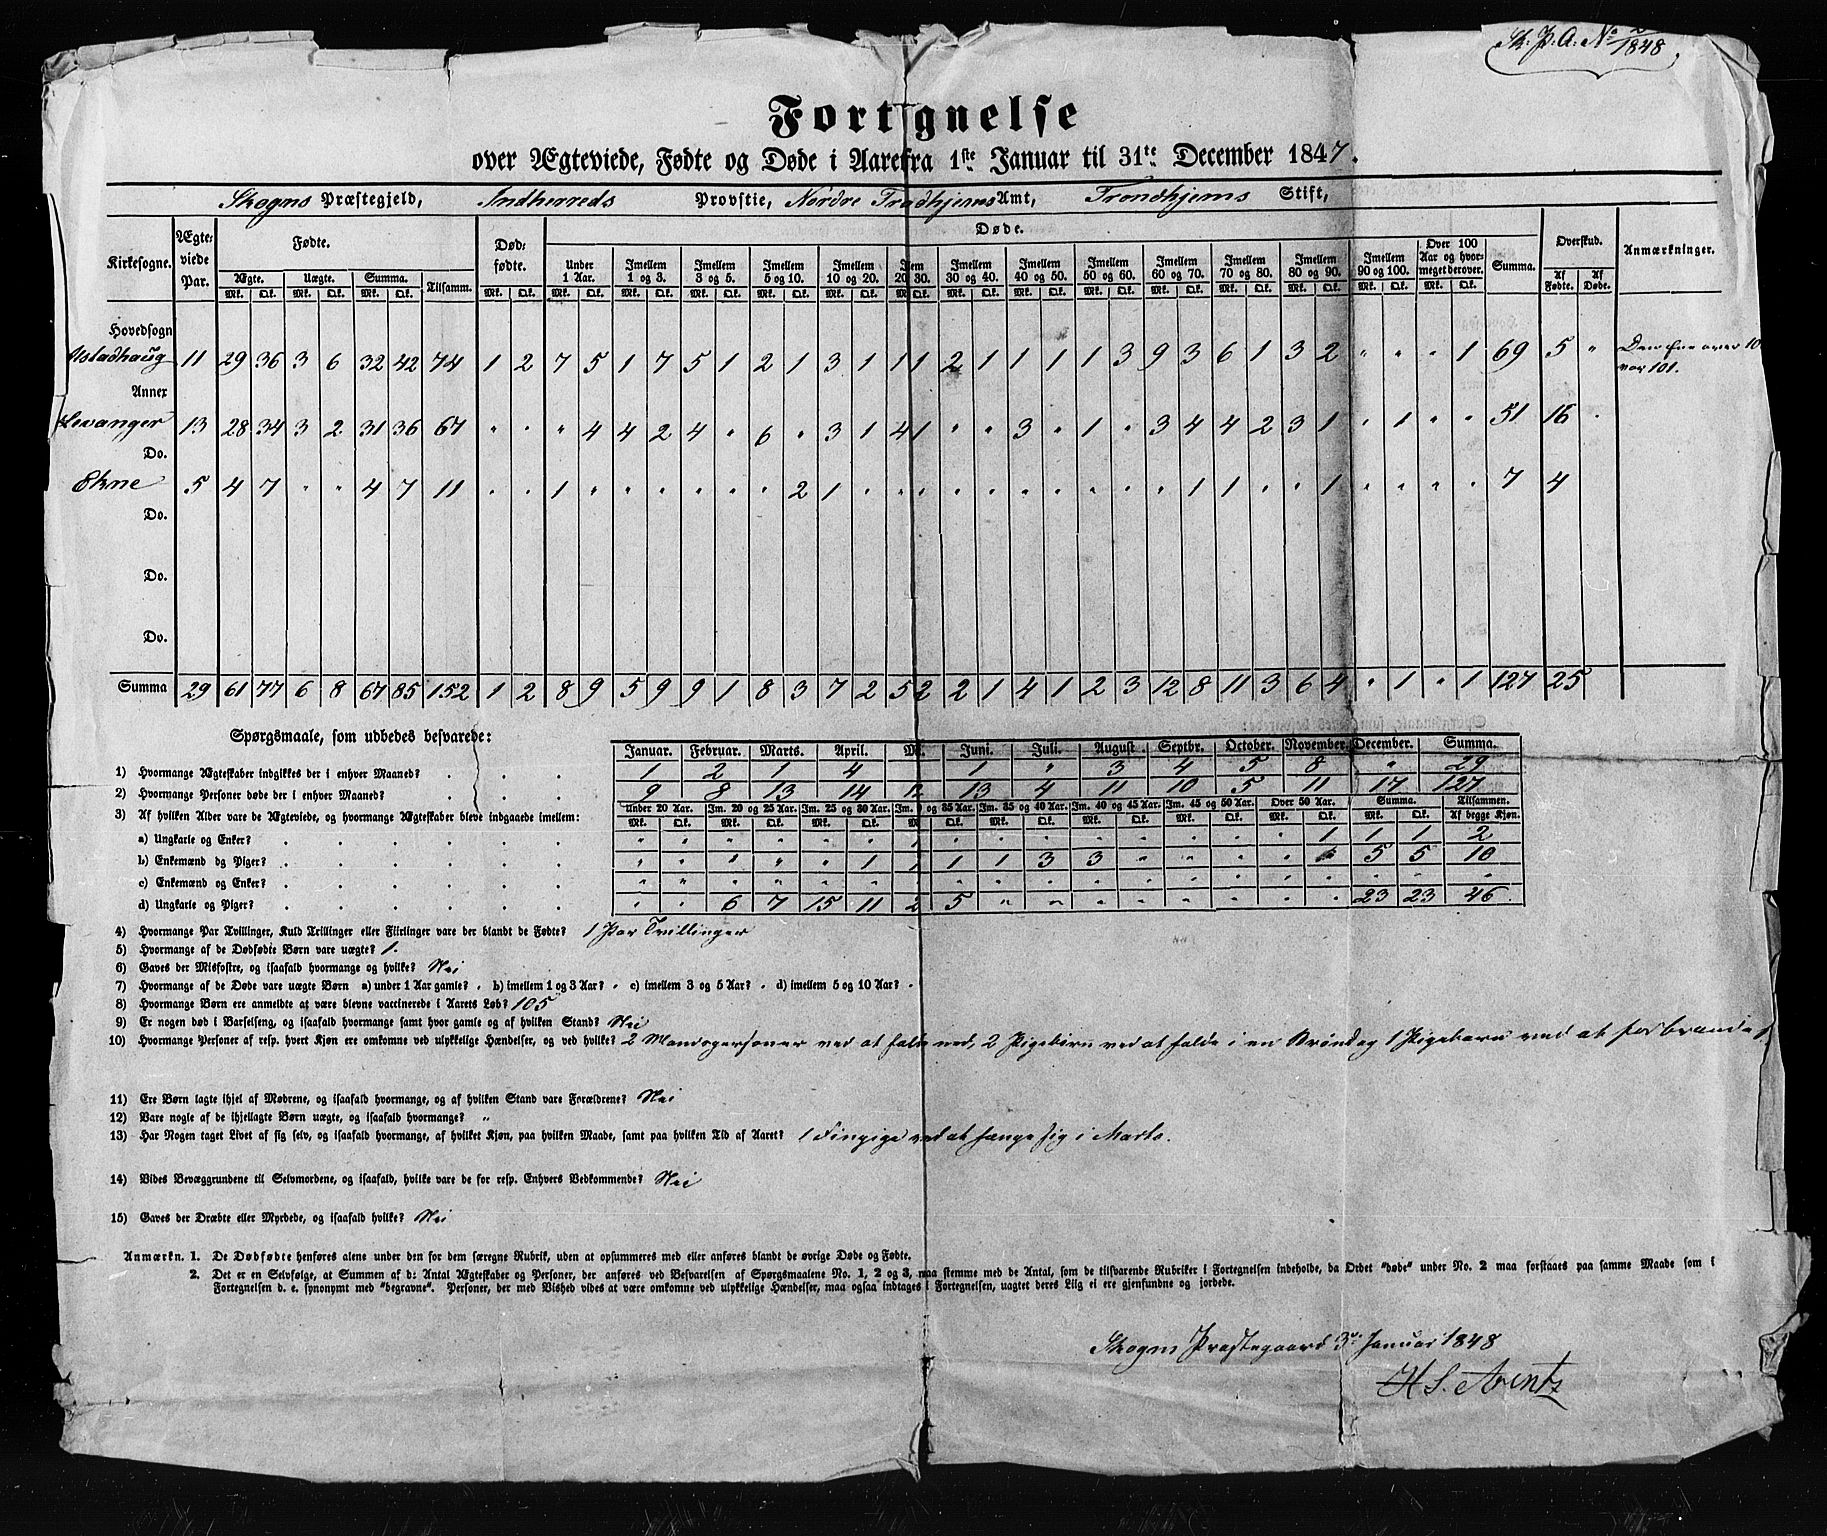 Sk. P. A. No 2/1848
Fortegnelse
over Ægteviede, Fødte og Døde i Aaret fra 1ste Januar til 31te December 1847.
Skogns Præstegjeld, Indherreds Provstie, Nordre Trondhjems Amt, Trondhjems Stift,
Kirkesogne. Ægteviede Par. Fødte. Dødfødte. Døde. Overskud. Anmærkninger.
Under 1 Aar. Imellem 1 og 3. Imellem 3 og 5. Imellem 5 og 10. Imellem 10 og 20. 20 30. Imellem 30 og 40. Imellem 40 og 50. Imellem 50 og 60. Imellem 60 og 70. Imellem 70 og 80. Imellem 80 og 90. Imellem 90 og 100. Over 100 Aar og hvormeget derover. Summa.
Ægte. Uægte. Summa. Tilsamm. Af Fødte. Af Døde.
Mk. Qk. Mk. Qk. Mk. Qk. Mk. Qk. Mk. Qk. Mk. Qk. Mk. Qk. Mk. Qk. Mk. Qk. Mk. Qk. Mk. Qk. Mk. Qk. Mk. Qk. Mk. Qk. Mk. Qk. Mk. Qk. Mk. Qk. Mk. Qk.
Hovedsogn
Alstadhaug 11 29 36 3 6 32 42 74 1 2 7 5 1 7 5 1 2 1 3 1 1 1 2 1 1 1 1 3 9 3 6 1 3 2 " " " 1 69 5 " Den Ene over 10
var 101.
Annex
Levanger 13 28 34 3 2 31 36 67 " " " 4 4 2 4 " 6 " 3 1 4 1 " " 3 " 1 " 3 4 4 2 3 1 " 1 " " 51 16
Do.
Ekne 5 4 7 " " 4 7 11 " " 1 " " " " " " 2 1 " " " " " " " " " " 1 1 " " 1 " " " " 7 4
Do.
Do.
Do.
Summa 29 61 77 6 8 67 85 152 1 2 8 9 5 9 9 1 8 3 7 2 5 2 2 1 4 1 2 3 12 8 11 3 6 4 " 1 " 1 127 25
Spørgsmaale, som udbedes besvarede:
Januar. Februar. Marts. April. Juni. Juli. August Septbr. October. November. December. Summa.
1) Hvormange Ægteskaber indgikkes der i enhver Maaned? 1 2 1 4 1 " 3 4 5 8 " 29
2) Hvormange Personer døde der i enhver Maaned? 9 8 13 14 12 13 4 11 10 5 11 17 127
Under 20 Aar. Im. 20 og 25 Aar. Im. 25 og 30 Aar. Im. og 35 Aar. Im. 35 og 40 Aar. Im. 40 og 45 Aar. Im. 45 og 50 Aar. Over 50 Aar. Summa. Tilsammen.
3) Af hvilken Alder vare de Ægteviede, og hvormange Ægteskaber bleve indgaaede imellem: Mk. Qk. Mk. Qk. Mk. Qk. Mk. Qk. Mk. Qk. Mk. Qk. Mk. Qk. Mk. Qk. Mk. Qk. Af begge Kjøn.
a) Ungkarle og Enker? " " " " " " 1 " " " " " " " " 1 1 1 2
b) Enkemænd og Piger? " " " " " 1 1 1 1 3 3 " " " " " 5 5 10
c) Enkemænd og Enker? " " " " " " " " " " " " " " " " " " "
d) Ungkarle og Piger? " " 6 7 15 11 2 5 " " " " " " " " 23 23 46
4) Hvormange Par Tvillinger, Kuld Trillinger eller Fiirlinger vare der blandt de Fødte? 1 Par Tvillinger
5) Hvormange af de Dødfødte Børn vare uægte? 1.
6) Gaves der Misfostre, og isaafald hvormange og hvilke? Nei
7) Hvormange af de Døde vare uægte Børn a) under 1 Aar gamle? . b) imellem 1 og 3 Aar? . c) imellem 3 og 5 Aar? . d) imellem 5 og 10 Aar? .
8) Hvormange Børn ere anmeldte at være blevne vaccinerede i Aarets Løb? 105
9) Er nogen død i Barselseng, og isaafald hvormange samt hvor gamle og af hvilken Stand? Nei
10) Hvormange Personer af resp. hvert Kjøn ere omkomne ved ulykkelige Hændelser, og ved hvilke? 2 Mandspersoner ved at falde ned, 2 Pigebørn ved at falde i en Brønd og 1 Pigebarn ved at forbrænde s
11) Ere Børn lagte ihjel af Mødrene, og isaafald hvormange, og af hvilken Stand vare Forældrene? Nei
12) Vare nogle af de ihjellagte Børn uægte, og isaafald hvormange? "
13) Har Nogen taget Livet af sig selv, og isaafald hvormange, af hvilket Kjøn, paa hvilken Maade, samt paa hvilken Tid af Aaret? 1 Finpige ved at hænge sig i Marts.
14) Vides Bevæggrundene til Selvmordene, og isaafald, hvilke vare de for resp. Enhvers Vedkommende? Nei
15) Gaves der Dræbte eller Myrdede, og isaafald hvilke? Nei
Anmærkn. 1. De Dødfødte henføres alene under den for dem særegne Rubrik, uden at opsummeres med eller anføres blandt de øvrige Døde og Fødte.
2. Det er en Selvfølge, at Summen af d: Antal Ægteskaber og Personer, der anføres ved Besvarelsen af Spørgsmaalene No. 1, 2 og 3, maa stemme med de Antal, som de tilsvarende Rubriker i Fortegnelsen indeholde, da Ordet "døde" under No. 2 maa forstaaes paa samme Maade som i
Fortegnelsen d. e. synonymt med "begravne". Personer, der med Vished vides at være omkomne ved ulykkelige Hændelser, maa ogsaa indtages i Fortegnelsen, uagtet deres Liig ei ere gjenfundne og jordede.
Skogns Præstegaard 3de Januar 1848
H S. Arentz